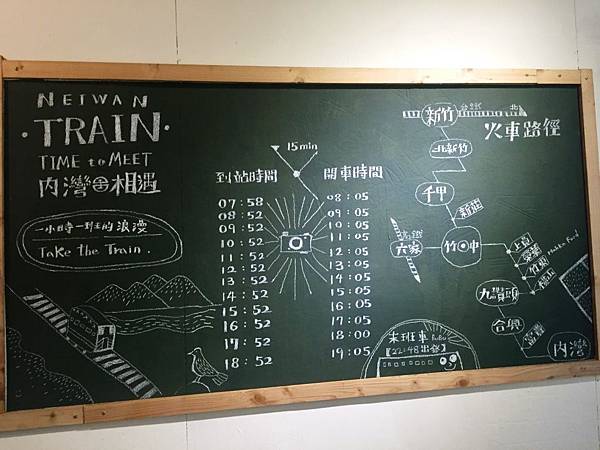 NEIWAN
·TRAIN·
TIME to MEET
內灣 相遇
一小時一班的浪漫
Take the Train.
15min
到站時間
07:58
08:52
09:52
10:52
11:52
12:52
13:52
14:52
15:52
16:52
17:52
18:52
開車時間
08:05
09:05
10:05
11:05
12:05
13:05
14:05
15:05
16:05
17:05
18:00
19:05
末班車
【22:48出發】
新竹
台鐵
北
火車路徑
北新竹
千甲
新莊
高鐵
六家
竹中
上員
榮華
竹東
橫山
九讚頭
合興
富貴
內灣